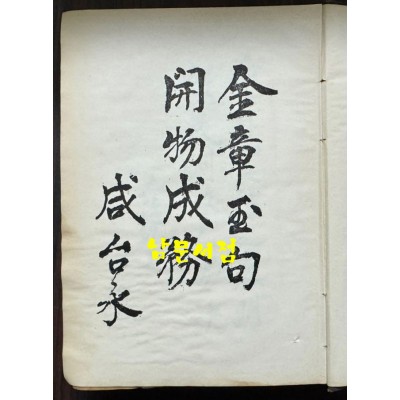 金章玉句
開物成務
咸台永
남문서점